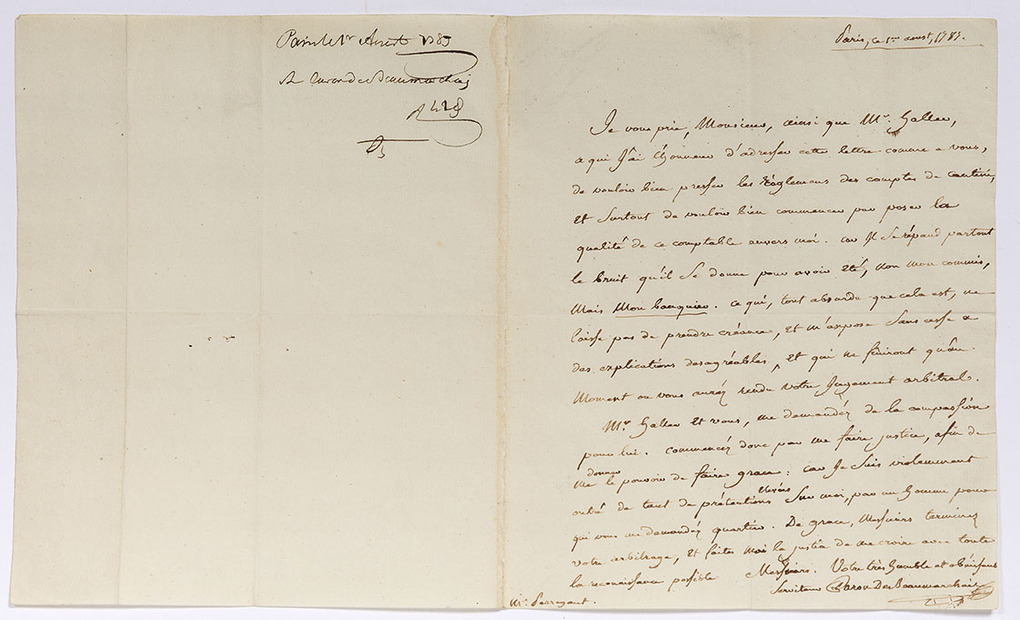 Paris le 1er Aoust 1783
Caron de Beaumarchais
Paris, ce 1er aoust, 1783.
Je vous prie, Monsieur, ainsi que Mr. Haller,
a qui J'ai l'honneur d'adresser cette lettre comme a vous,
de vouloir bien presser les Règlemens des comptes de cantini,
et surtout de vouloir bien commencer par poser la
qualité de ce comptable envers moi. car Il se répand partout
le bruit qu'il se donne pour avoir été, non mon commis,
mais Mon banquier. ce qui, tout absurde que cela est, ne
laisse pas de prendre créance, et m'expose sans cesse a
des explications desagréables, et qui ne finiront qu'au
Moment ou vous aurez rendu votre Jugement arbitral.
Mr. Haller et vous, me demandéz de la compassion
pour lui. commencéz donc par me faire justice, afin de
me donner le pouvoir de faire grace: car Je suis violemment
outré de tant de prétentions sur moi, par un homme pour
qui vous me demandéz quartier. De grace, Messieurs terminéz
votre arbitrage, et faites moi la justice de me croire avec toute
la reconaissance possible Messieurs. Votre très humble et obéissant
Serviteur Caron De Beaumarchais
Mr. Perregaut.